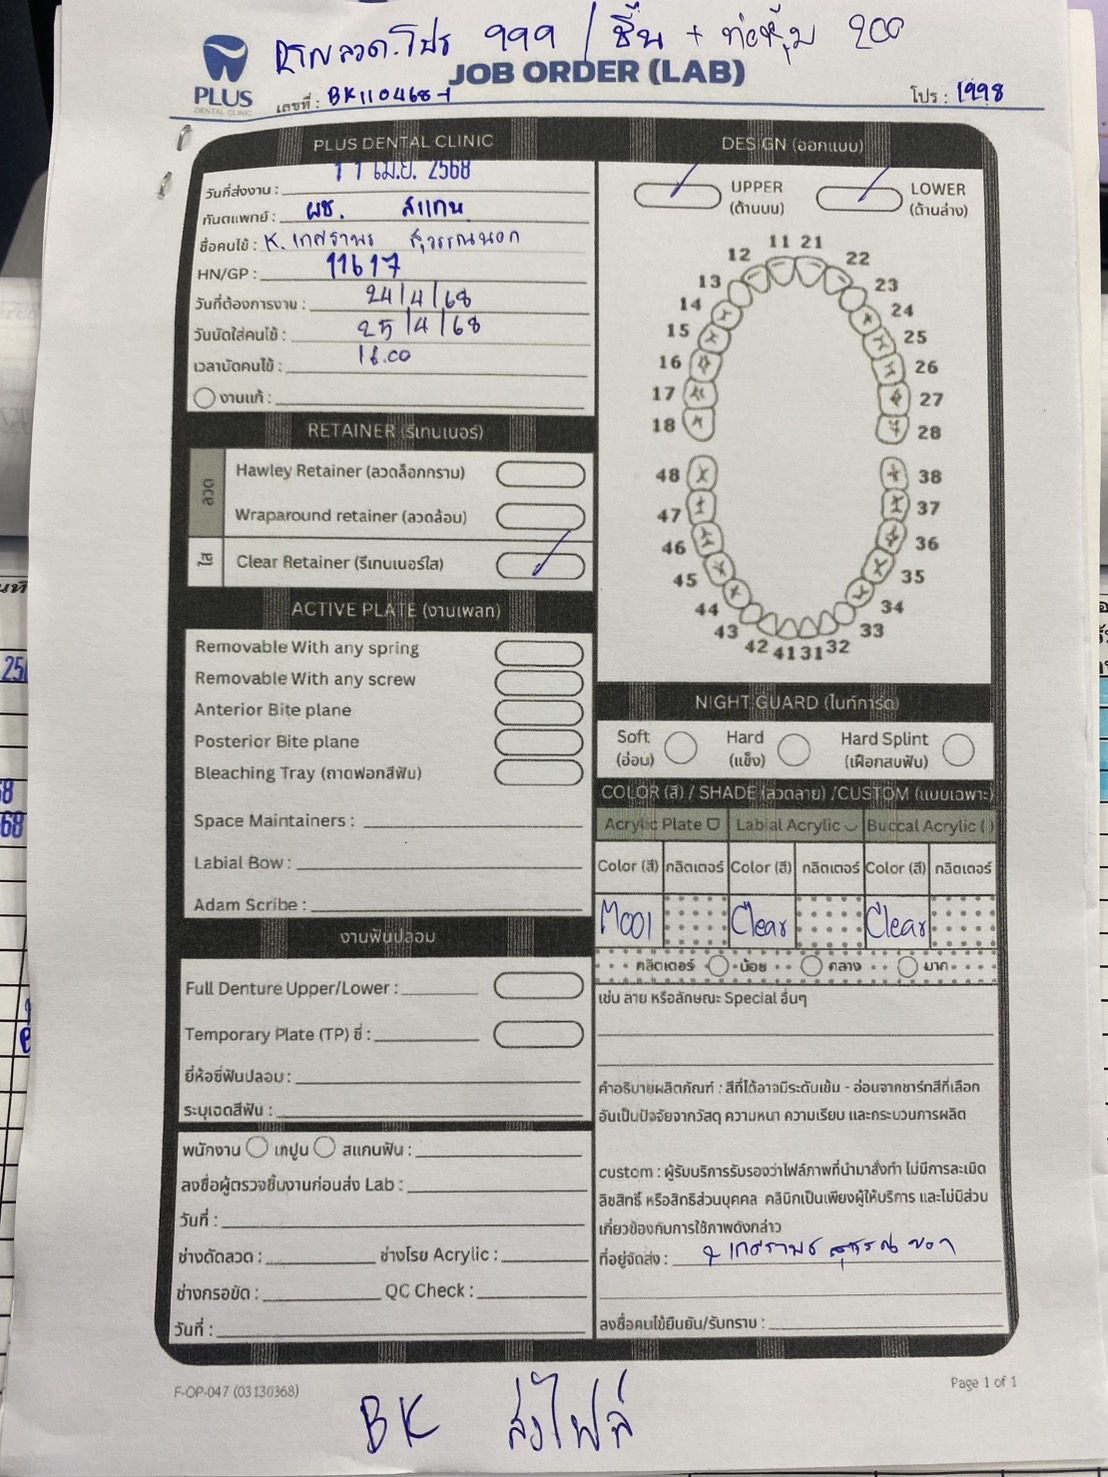 999 / ชิ้น + ท่อหุ้ม 200
PLUS
DENTAL CLINIC
JOB ORDER (LAB)
เลขที่ : BK110468-1
โปร : 1998
PLUS DENTAL CLINIC
วันที่ส่งงาน : 11 เม.ย. 2568
ทันตแพทย์ : ผช. สแกน
ชื่อคนไข้ : K. เกศราพร สุวรรณนอก
HN/GP : 11617
วันที่ต้องการงาน : 24/4/68
วันนัดใส่คนไข้ : 25/4/68
เวลานัดคนไข้ : 16.00
งานแก้ :
RETAINER (รีเทนเนอร์)
ลวด
Hawley Retainer (ลวดล็อกกราม)
Wraparound retainer (ลวดล้อม)
ใส
Clear Retainer (รีเทนเนอร์ใส)
ACTIVE PLATE (งานเพลท)
Removable With any spring
Removable With any screw
Anterior Bite plane
Posterior Bite plane
Bleaching Tray (ถาดฟอกสีฟัน)
Space Maintainers :
Labial Bow :
Adam Scribe :
งานฟันปลอม
Full Denture Upper/Lower :
Temporary Plate (TP) ซี่ :
ยี่ห้อซี่ฟันปลอม :
ระบุเฉดสีฟัน :
พนักงาน เทปูน สแกนฟัน :
ลงชื่อผู้ตรวจชิ้นงานก่อนส่ง Lab :
วันที่ :
ช่างดัดลวด : ช่างโรย Acrylic :
ช่างกรอขัด : QC Check :
วันที่ :
DESIGN (ออกแบบ)
UPPER
(ด้านบน)
LOWER
(ด้านล่าง)
11 21
12 22
13 23
14 24
15 25
16 26
17 27
18 28
48 38
47 37
46 36
45 35
44 34
43 33
42 41 31 32
NIGHT GUARD (ไนท์การ์ด)
Soft
(อ่อน)
Hard
(แข็ง)
Hard Splint
(เฝือกสบฟัน)
COLOR (สี) / SHADE (ลวดลาย) /CUSTOM (แบบเฉพาะ)
Acrylic Plate Labial Acrylic Buccal Acrylic ( )
Color (สี) กลิตเตอร์ Color (สี) กลิตเตอร์ Color (สี) กลิตเตอร์
M001 Clear Clear
กลิตเตอร์ น้อย กลาง มาก
เช่น ลาย หรือลักษณะ Special อื่นๆ
คำอธิบายผลิตภัณฑ์ : สีที่ได้อาจมีระดับเข้ม - อ่อนจากชาร์ทสีที่เลือก
อันเป็นปัจจัยจากวัสดุ ความหนา ความเรียบ และกระบวนการผลิต
custom : ผู้รับบริการรับรองว่าไฟล์ภาพที่นำมาสั่งทำ ไม่มีการละเมิด
ลิขสิทธิ์ หรือสิทธิส่วนบุคคล คลินิกเป็นเพียงผู้ให้บริการ และไม่มีส่วน
เกี่ยวข้องกับการใช้ภาพดังกล่าว
ที่อยู่จัดส่ง : เกศราพร สุวรรณนอก
ลงชื่อคนไข้ยืนยัน/รับทราบ :
F-OP-047 (03130368)
Page 1 of 1
BK ส่งไฟล์